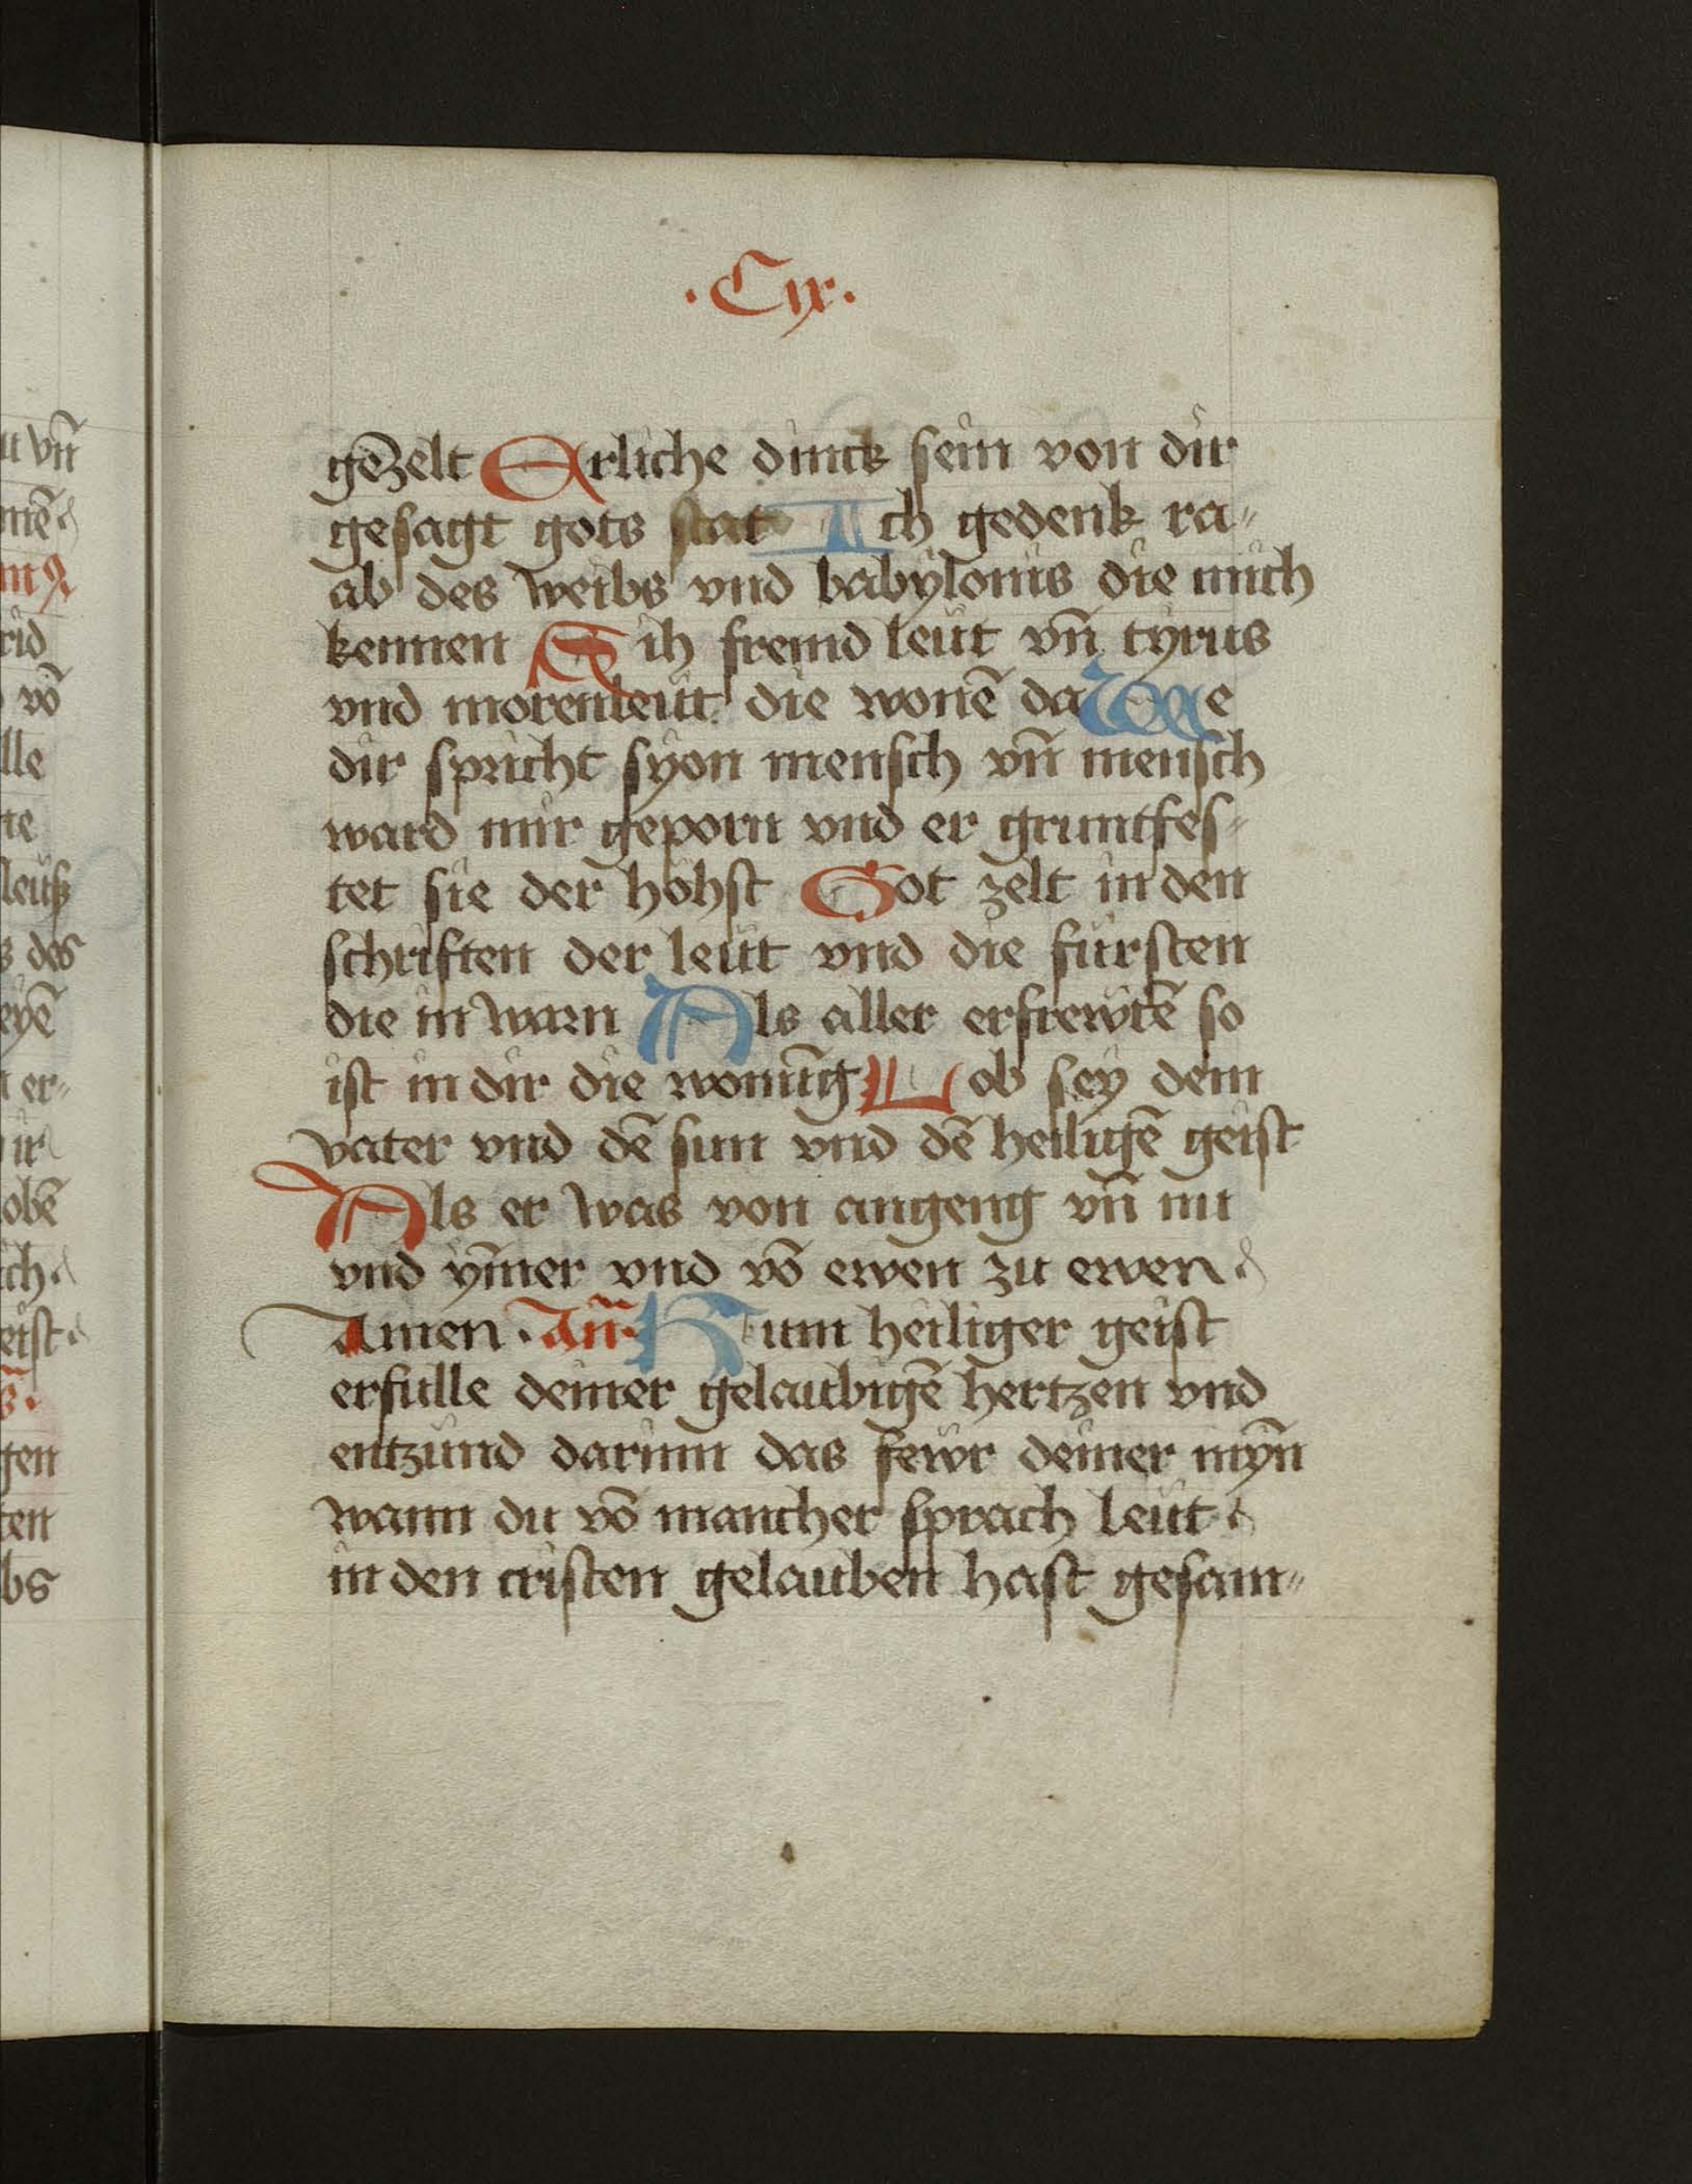 .Cix.
gezelt Erliche dinck sein von dir
gesagt gots stat Ich gedenk ra⸗
ab des weibs vnd babylonis die mich
kennen Sih fremd leut vn̄ tyrus
vnd morenleut die wonē da We
dir spricht syon mensch vn̄ mensch
ward mir geporn vnd er gruntfes⸗
tet sie der höhst Got zelt in den
schriften der leüt vnd die fürsten
die in warn Als aller erfrewtē so
ist in dir die wonūg Lob sey dem
vater vnd dē sun vnd dē heiligē geist
Als er was von angeng vn̄ nu
vnd ym̄er vnd vō ewen zu ewen
Amen. An̄. Kum heiliger geist
erfulle deiner gelaubigē hertzen vnd
entzünd darinn das fewr deiner myn̄
wann du vō mancher sprach leüt
in den cristen gelauben hast gesam⸗